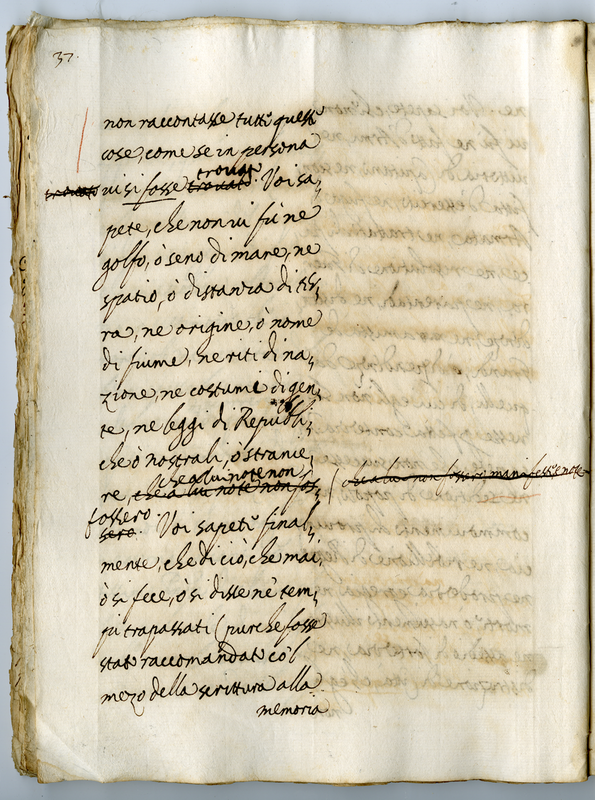 37.
non raccontasse tutte queste
cose, come se in persona
trovato
trovato vi si fosse trovato. Voi sa,
pete, che non vi fù ne
golfo, ò seno di mare, ne
spatio, ò distanza di ter,
ra, ne origine, ò nome
di fiume, ne riti di na,
zione, ne costumi di gen,
te, ne leggi di Republi,
che ò nostrali, ò stranie,
che à lui note non
re, che à lui note non fos, ( che a lui non fossero manifeste e note
fossero
sero. Voi sapete final,
mente, che di ciò, che mai
ò si fece, ò si disse ne' tem,
pi trapassati (purche fosse
stato raccomandato co'l
mezo della scrittura alla
memoria